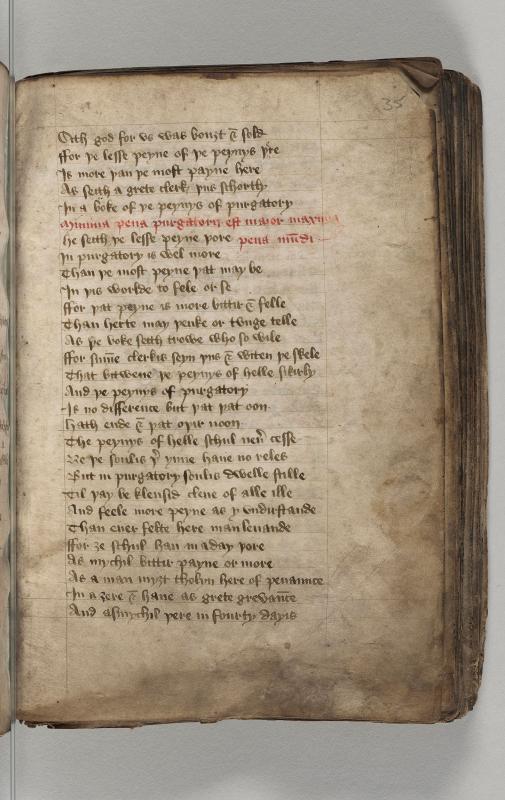 35
Seth god for vs was bouȝt & sold
ffor þe lesse peyne of þe peynys þre
Is more þan þe most payne here
As seith a grete clerk þus schortly
In a boke of þe peynys of purgatory
Minima pena purgatorii est maior maxima
he seith þe lesse peyne þore pena mūdi
In purgatory is wel more
Than þe most peyne þat may be
In þis worlde to fele or se
ffor þat peyne is more bittir & felle
Than herte may þenke or tunge telle
As þe boke seith trowe who so wile
ffor sūme clerkis seyn þus & witen þe skele
That bitwene þe peynys of helle sikirly
And þe peynys of purgatory
Is no difference but þat þat oon
hath ende & þat oþir noon
The peynys of helle schul neủ cesse
Ne þe soulis þ̉ ynne haue no reles
But in purgatory soulis dwelle stille
Til þay be klensid clene of alle ille
And feele more peyne as y vndirstande
Than euer felte here man leuande
ffor ȝe schul han in a day þore
As mychil bittir payne or more
As a man myȝt tholyn here of penaunce
In a ȝere & haue as grete grevāūce
And asmychil þere in fourty dayis